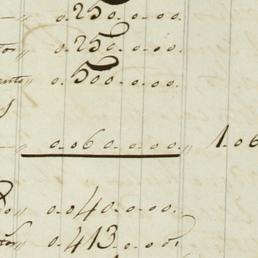 0.250.0.00.
0.250.0.00.
0.500.0.00.
0.060.0.00. 1.06
0.040.0.00.
0.413.0.00.